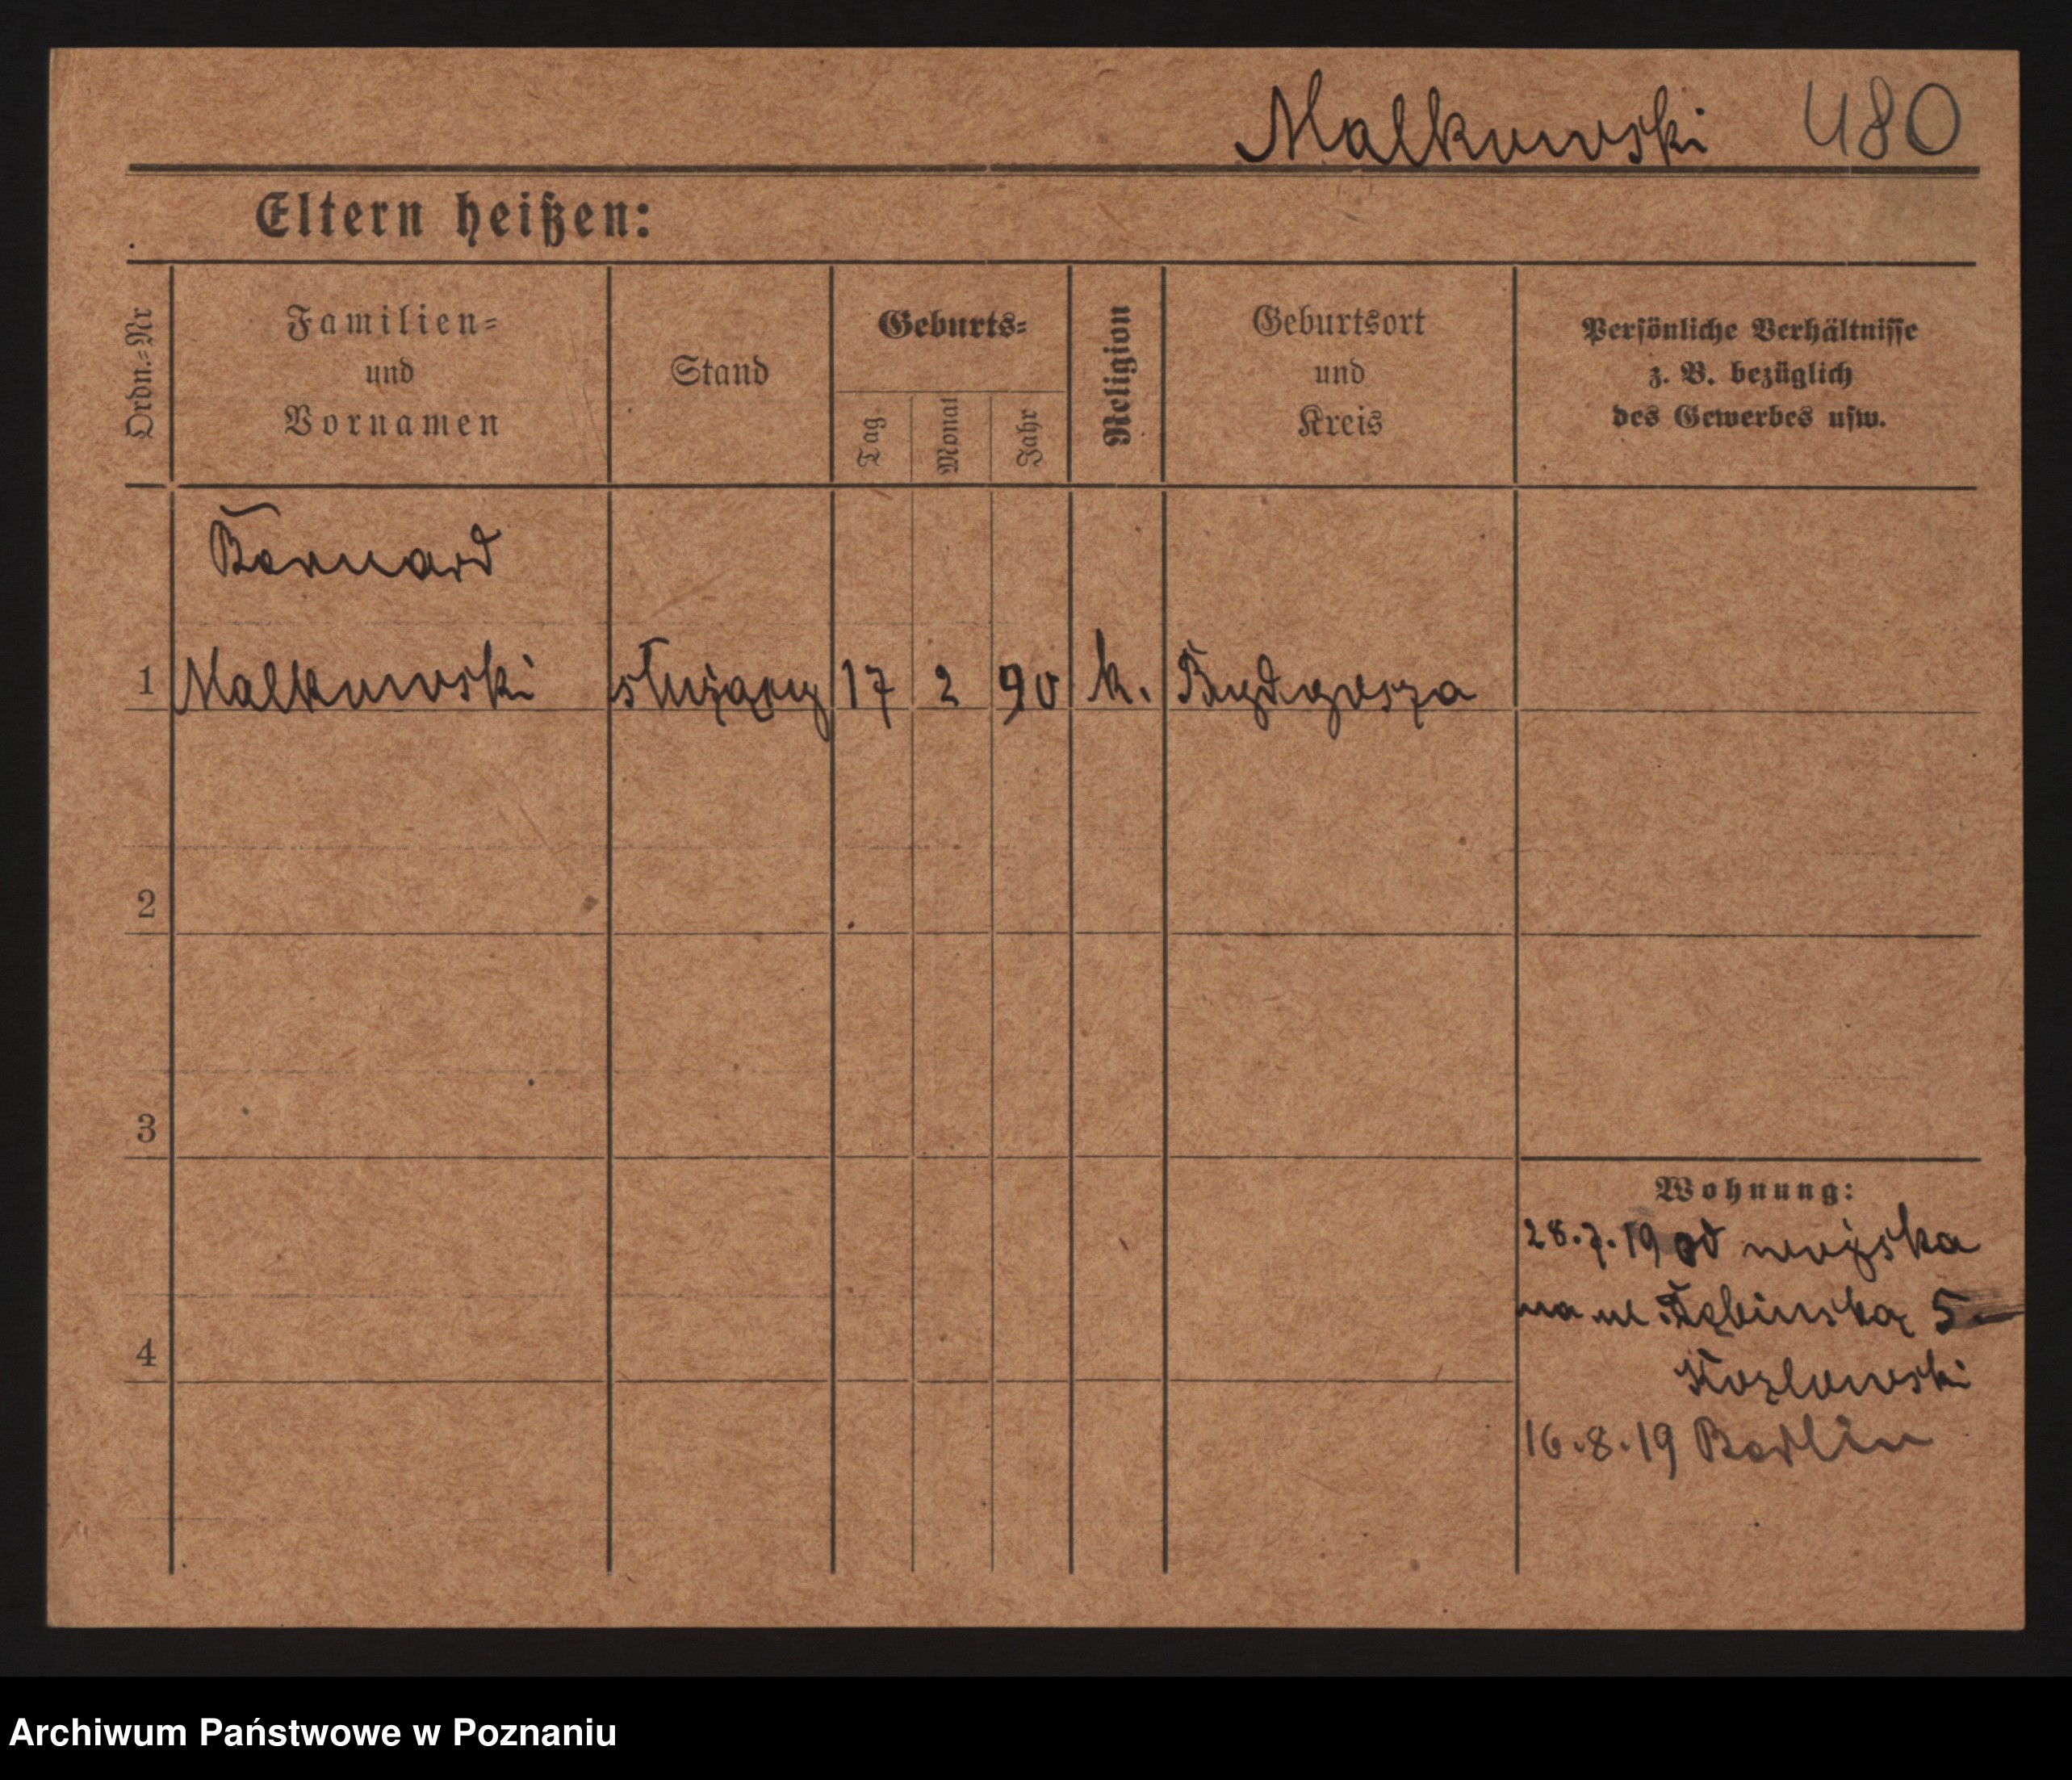 Malkowski 480
Eltern heißen:
Ordn.=Nr
Familien=
und
Vornamen
Stand
Geburts=
Tag
Monat
Jahr
Religion
Geburtsort
und
Kreis
Persönliche Verhältnisse
z. B. bezüglich
des Gewerbes usw.
Bernard
1 Malkowski służący 17 2 90 k. Bydgoszcz
2
3
4
Wohnung:
28.7.19 od wojska
na ul. 5
Kozlowski
16.8.19 Berlin
Archiwum Państwowe w Poznaniu